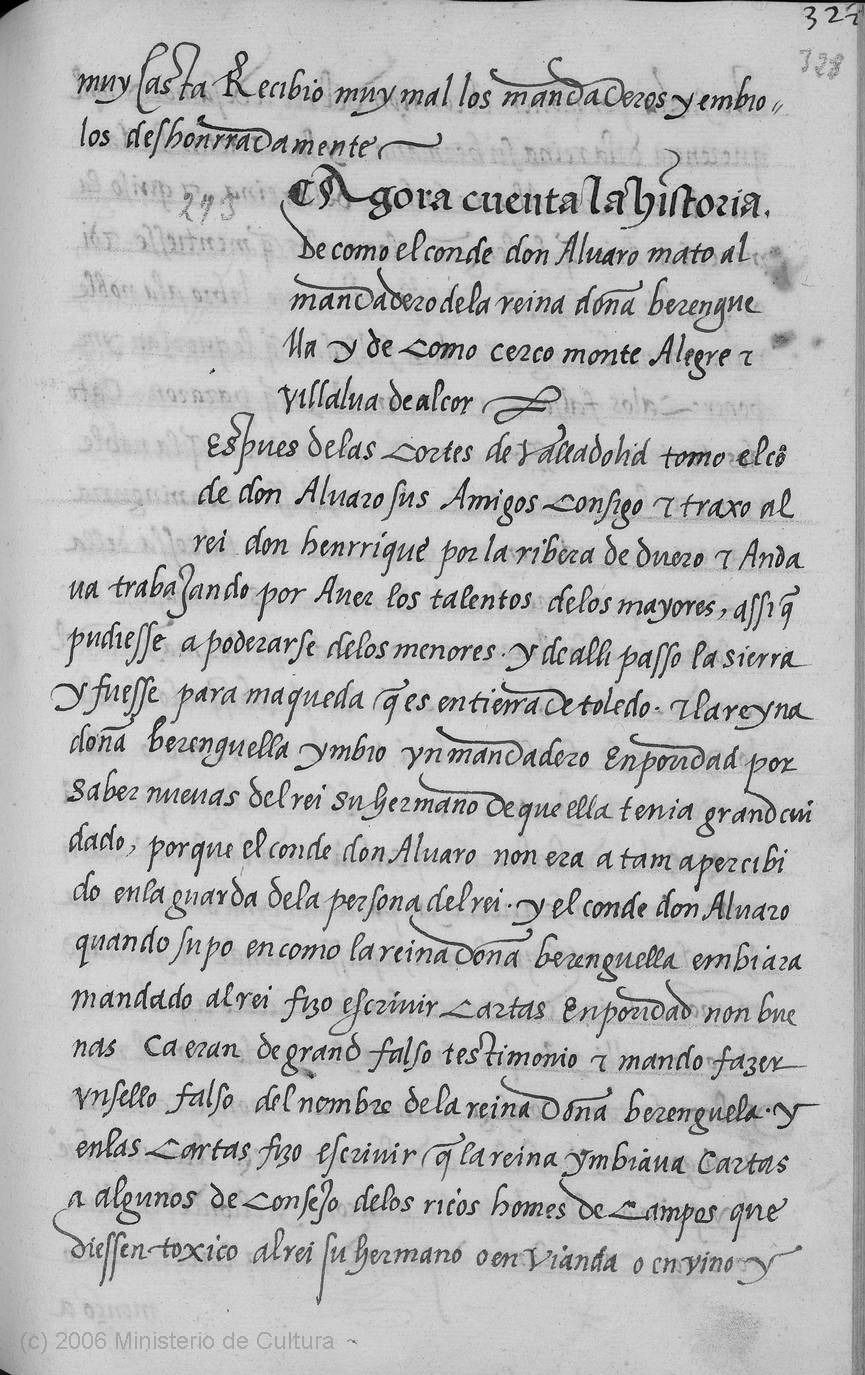 327
328
muy casta Recibio muy mal los mandaderos y embio
los deshonrradamente
293
Agora cuenta la historia.
De como el conde don Alvaro mato al
mandadero de la reina doña berengue
lla y de como cerco monte Alegre τ
villalva de alcor
Espues delas cortes de valladolid tomo el cõ
de don Alvaro sus Amigos consigo τ traxo al
rei don henrrique por la ribera de duero τ Anda
va trabajando por Aver los talentos delos mayores, assi q̃
pudiesse apoderarse delos menores. y de alli passo la sierra
y fuesse para maqueda q̃ es en tierra de toledo. τ la reyna
doña berenguella ymbio vn mandadero En poridad por
saber nuevas del rei su hermano de que ella tenia grand cui
dado, porque el conde don Alvaro non era atam apercibi
do en la guarda dela persona del rei. y el conde don Alvaro
quando supo en como la reina doña berenguella embiara
mandado al rei fizo escrivir cartas En poridad non bue
nas Ca eran de grand falso testimonio τ mando fazer
vn sello falso del nombre de la reina doña berenguela. y
en las cartas fizo escrivir q̃ la reina ymbiava Cartas
a algunos de consejo delos ricos homes de campos que
diessen toxico al rei su hermano o en vianda o en vino y
(c) 2006 Ministerio de Cultura